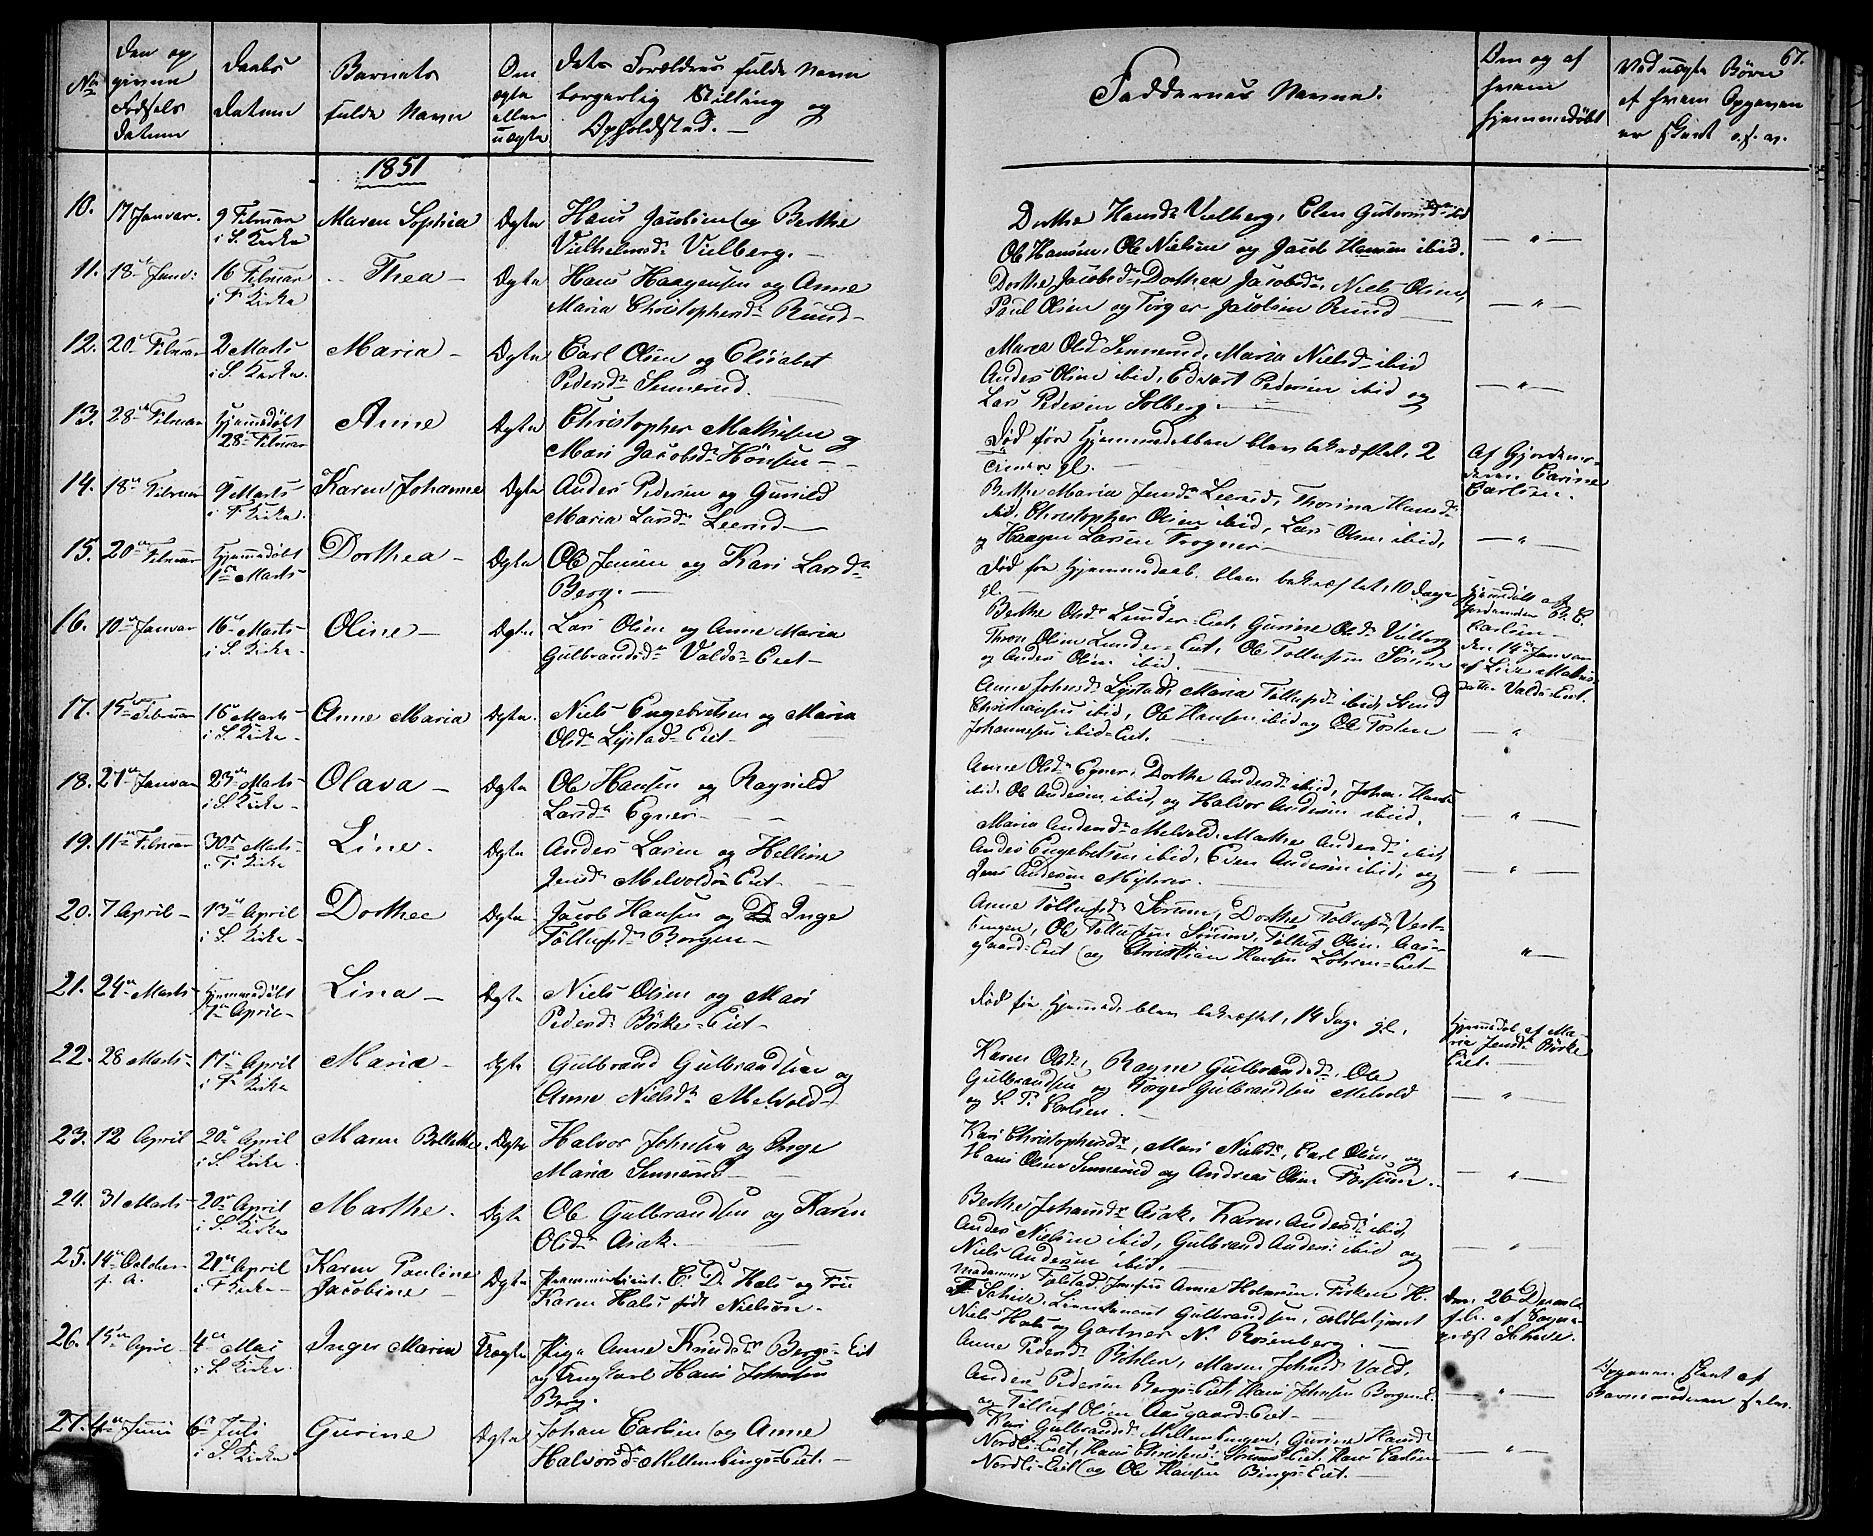 67.
No
Den og
givne
Fødsels
datum
Daabs
datum
Barnets
fulde Navn
Om
ægte
eller
uægte
dets Forældres fulde Navn
borgerlig Stilling og
Opholdsted. —
Faddernes Navne.
Om og af
hvem
hjemmedøbt
Ved uægte Børn
af hvem Opgaven
er skeet o.s.v.
1851
10. 17 Januar. 9 Februar Maren Sophia Ægte Hans Jacobsen og Berthe
i S. Kirke Vilhelmsdr Vulberg. —
Dorthe Hansdr Vulberg, Elen
Ole Hansen, Ole Nielsen og Jacob Hansen ibid. — " —
11. 18de Janv: 16 Februar Thea — Ægte Hans Haagensen og Anne
i F Kirke Maria Christophersdr Ruud —
Dorthe Jacobsdr, Dorthea Jacobsdr, Niels Olsen,
Paul Olsen og Torger Jacobsen Ruud — " —
12. 20de Februar 2 Marts Maria — Ægte Carl Olsen og Elisabet
i S. Kirke. Pedersdr Sennerud.
Maren Olsdr Sennerud, Maria Nielsdr ibid
Anders Olsen ibid, Edvart Pedersen ibid og
Lars Pedersen Solberg. — — " —
13. 28de Februar Hjemmedøbt Anne Ægte Christopher Mathisen og
28de Februar Mari Jacobsdr Hønsen —
Død før Hjemmedaaben blev bekræftet, 2
gl. —
Af Gjordemo-
deren Carine
Carlsen.
14. 18de Februar 9 Marts Karen Johanne Ægte Anders Pedersen og Gunild
i F Kirke. Maria Larsdr Leerud —
Berthe Maria Jensdr Leerud, Thorina Hansdr
ibid, Christopher Olsen ibid, Lars Olsen ibid,
og Haagen Larsen Frogner — — " —
15. 20de Februar Hjemmedøbt Dorthea — Ægte Ole Jensen og Kari Larsdr
1ste Marts Berg. —
Død før Hjemmedaab. blev bekræftet, 10 Dage
gl. —
Hjemmedøbt af
Carlsen —
16. 10de Januar 16de Marts Oline — Ægte Lars Olsen og Anne Maria
i S. Kirke — Gulbrandsdr Valds-Eiet —
Berthe Olsdr Lunder-Eiet, Gurine Olsdr Vulberg
Thron Olsen Lunder-Eiet, Ole Tollefsen Sørum
og Anders Olsen ibid.
den 14de Januar
af Live
Valds-Eiet.
17. 15de Februar 16 Marts Anne Maria Ægte. Niels Engebretsen og Maria
i S Kirke — Olsdr Lystad-Eiet —
Anne Johnsdr Lystad, Maria Tollefsdr ibid,
Christiansen ibid, Ole Hansen ibid og Ole Tosten
Johannesen ibid-Eiet. "
18. 27de Januar 23de Marts Olava — Ægte Ole Hansen og Ragnild
i S Kirke — Larsdr Egner —
Anne Olsdr Egner, Dorthe Andersdr ibid, Johan Hansen
ibid. Ole Andersen ibid, og Halvor Andersen ibid. — " —
19. 11te Februar 30te Marts Line. Ægte Anders Larsen og Helline
i F. Kirke Jensdr Melvolds Eiet —
Maria Andersdr Melvold, Marthe Andersdr ibid,
Anders Engebretsen ibid, Even Andersen ibid, og
Jens Andersen Myhrer. — " —
20. 7 April — 13de April Dorthee Ægte Jacob Hansen og D Inge
i S. Kirke — Tollefsdr Borgen —
Anne Tollefsdr Sørum, Dorthe Tollefsdr Vest-
bingen, Ole Tollefsen Sørum, Tollef Olsen Aas-
gaard-Eiet og Christian Hansen Lohren-Eiet — "
21. 24de Marts Hjemmedøbt Lina — Ægte Niels Olsen og Mari
7de April — Pedersdr Børke-Eiet —
Død før Hjemmed. blev bekræftet, 14 Dage gl.
Hjemmedøbt af Ma-
ria Jensdr Børke
Eiet. —
22. 28 Marts — 17de April Maria — Ægte Gulbrand Gulbrandsen og
i F Kirke Anne Nielsdr Melvold —
Karen Olsdr, Ragne Gulbrandsdr. Ole
Gulbrandsen og Torger Gulbrandsen Melvold
og S. P. Carlsen. — " —
23. 12 April 20de April Maren Bollette Ægte Halvor Johnsen og Inge
i S. Kirke. Maria Sennerud —
Kari Christophersdr, Mari Nielsdr, Carl Olsen og
Hans Olsen Sennerud og Andreas Olsen Forsum. — " —
24. 31 Marts — 20de April Marthe. Ægte Ole Gulbrandsen og Karen
i S. Kirke Olsdr Asak. —
Berthe Johansdr Asak, Karen Andersdr ibid,
Anders Nielsen ibid, Gulbrand Anders: ibid og
Niels Andersen ibid. — " —
25. 14de October 21de April Karen Pauline Ægte Premierlieut. C. D. Hals og Fru
f. A. i F Kirke — Jacobine — Karen Hals født Nielsen.
Madamme Tolstad, Jomfru Anne Holmsen, Frøken H.
Schive, Lieutenant Gulbrandsen,
Niels Hals og Gartner N. Rosenberg. —
den 26 Decembr
f. A. af Sogne-
præst Schive.
26. 15de April 4de Mai Inger Maria Uægte Pige Anne Knudsdr Bergs-Eiet
i S. Kirke. og Ungkarl Hans Johnsen
Berg.
Anne Pedersdr Bøhler, Maren Johnsdr Vald,
Anders Pedersen Bergs-Eiet, Hans Johnsen Borgen
og Tollef Olsen Aasgaard-Eiet — — " —
Opgaven skeet af
Barnemoderen selv.
27. 4de Juni 6te Juli Gurine Ægte Johan Carlsen og Anne
i S. Kirke Halvorsdr Mellembings-Eiet. —
Kari Gulbrandsdr Mellembingen, Gurine Hansdr
Nordli-Eiet, Hans Christens: Eiet, Hans Carlsen
Nordli-Eiet og Ole Hansen Bings-Eiet. — — " —